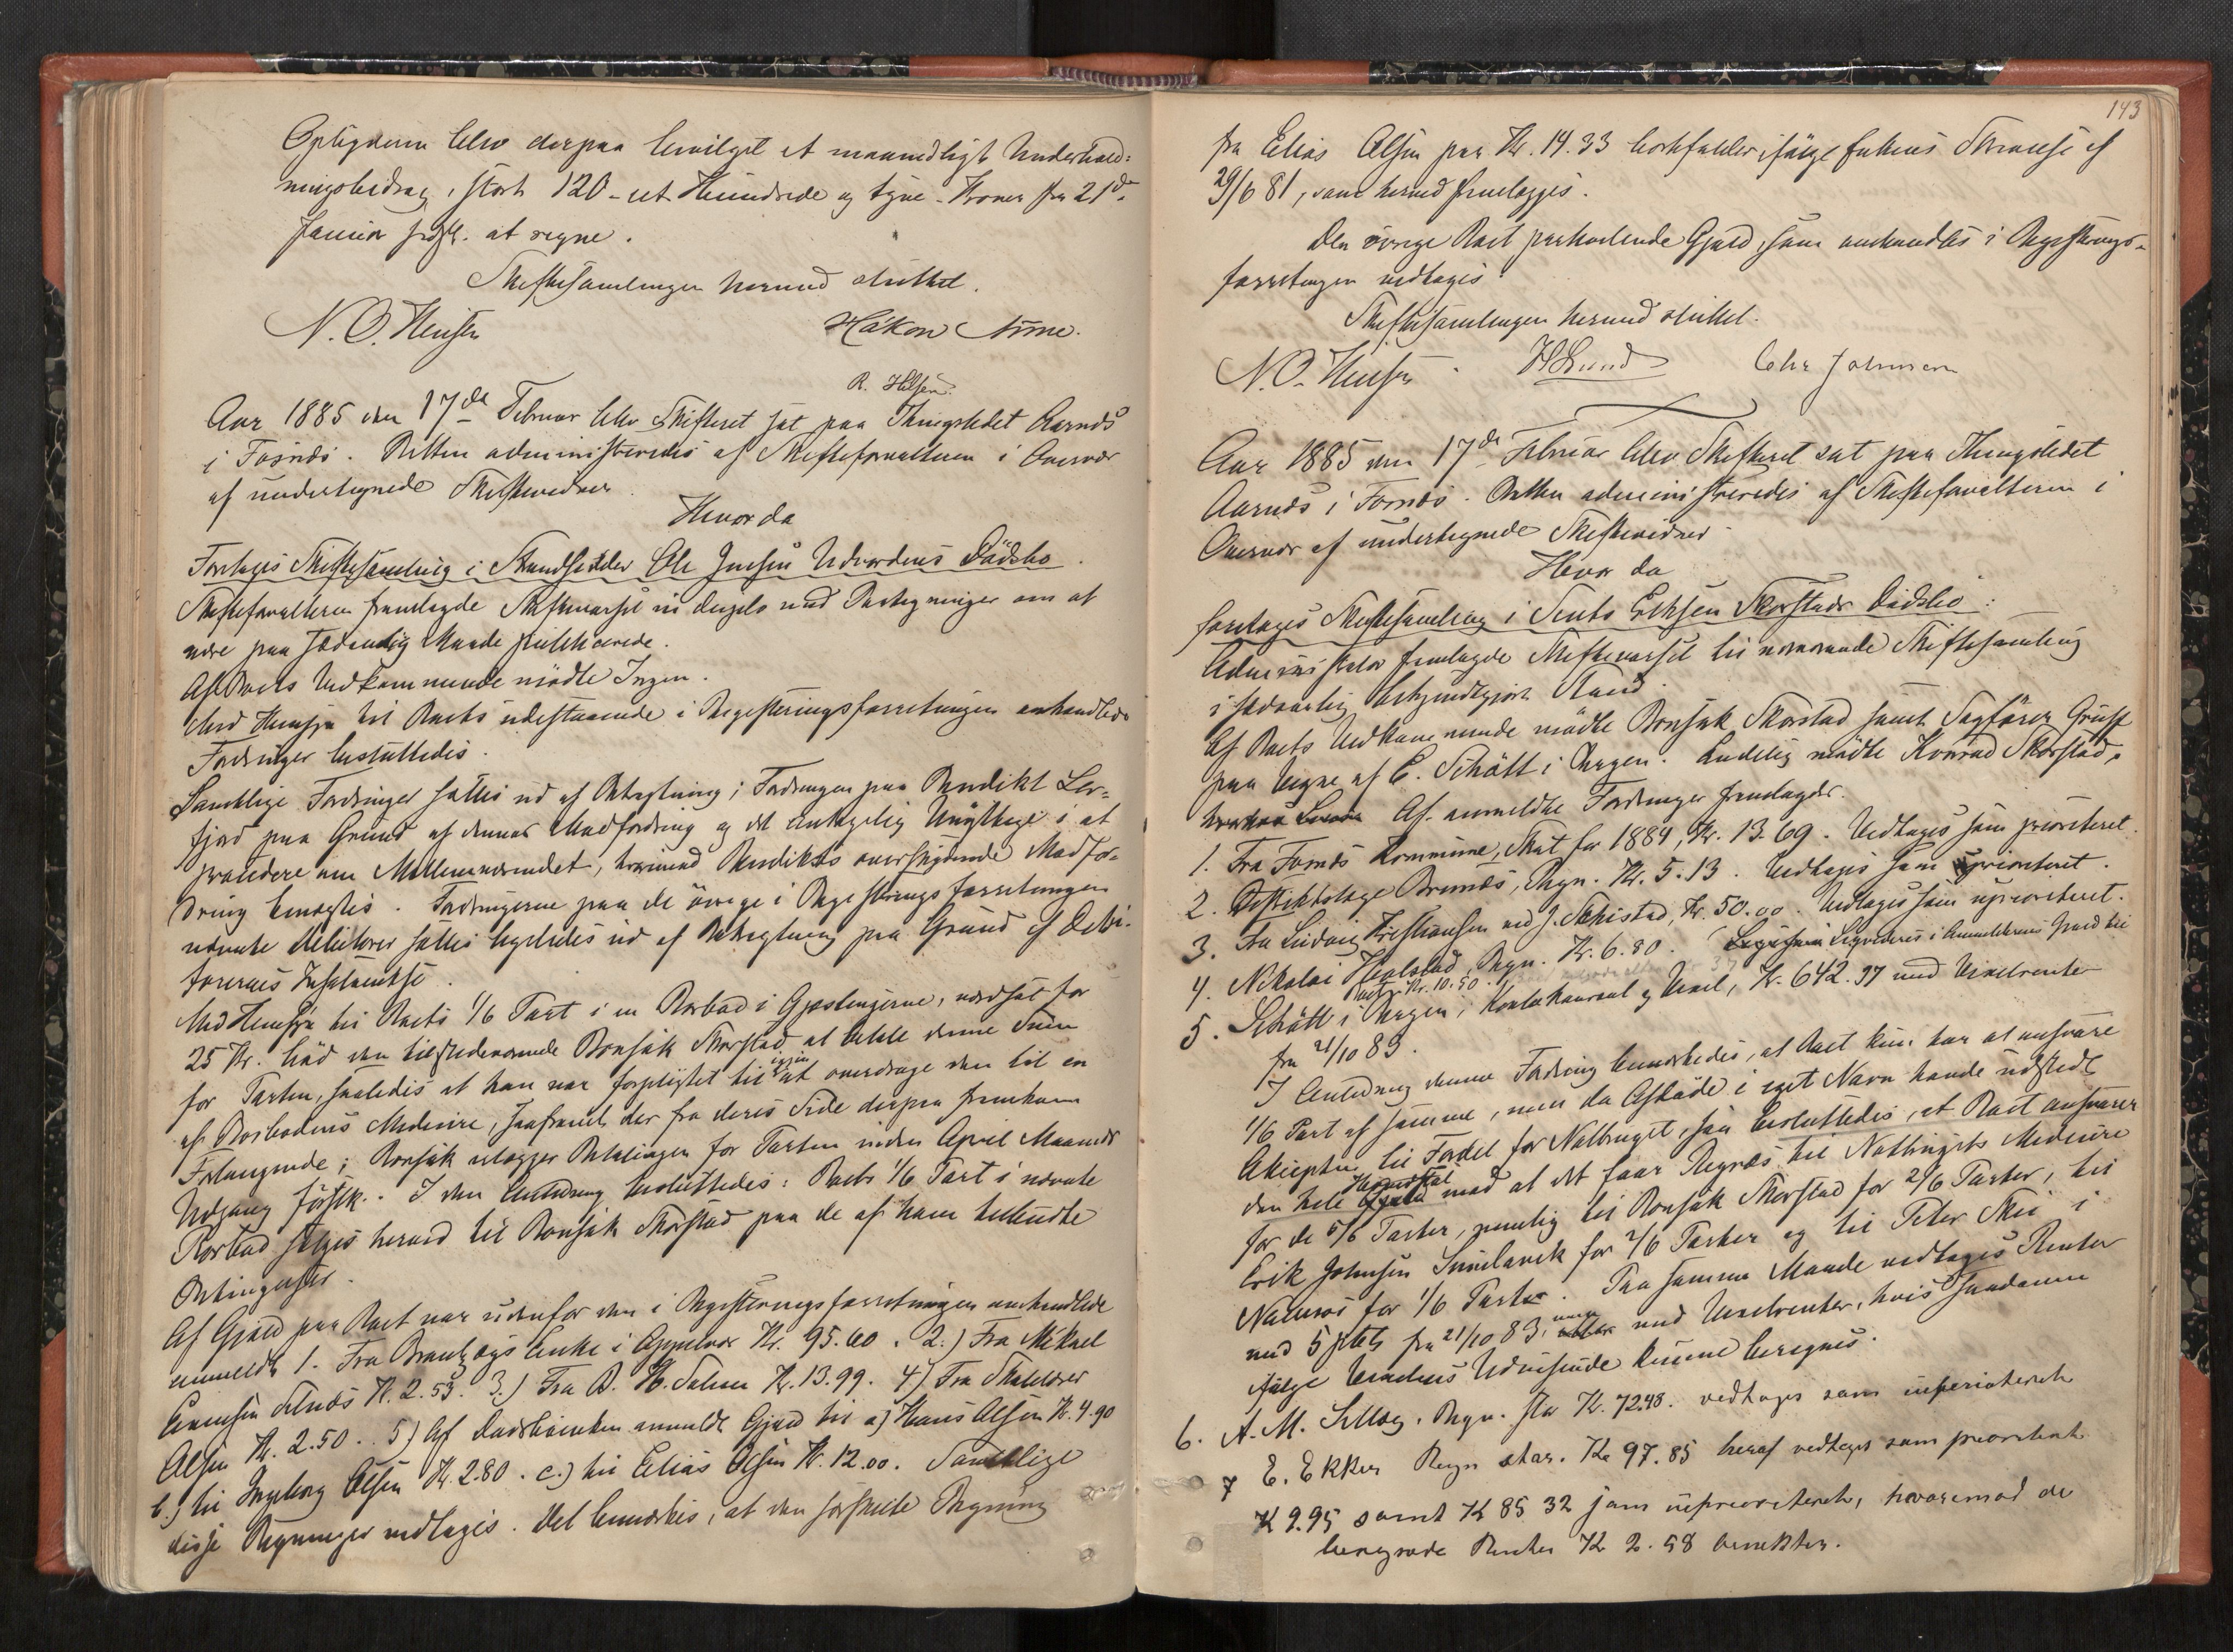 Opligneren blev derpaa bevilget et maanedligt Underhold:
ningsbidrag, stort 120 - et Hundrede og tyve - Kroner fra 21de
Januar at regne.
Skiftesamlingen hermed sluttet.
N. O. Hensen Håkon Aune.
R. Hilsen
Aar 1885 den 17de Februar blev Skifteret sat paa Thingstedet Aarnds
i Fosnæs. Retten administreredes af Skifteforvalteren i Overvær
af undertegnede Skiftevidner
Hvor da
Foretages Skiftesamling i Strandsidder Ole Jensen Udvordens Dødsbo.
Skifteforvalteren fremlagde Skiftevarsel in duplo med Paategninger om at
være paa sædvanlig Maade publicerede.
Af Boets Vedkommende mødte Ingen.
Med Hensyn til Boets udestaaende i Registreringsforretningen omhandlede
Fordringer besluttedes.
Samtlige Fordringer sættes ud af Betragtning; Fordringen paa Bendikt Ler-
fjord paa Grund af dennes Modfordring og det antagelig Unyttige i at
procedere om Mellemværendet, hvorimod Bendikts overskydende Modfor-
dring benægtes. Fordringerne paa de øvrige i Registreringsforretningen
nævnte Debitorer sættes ligeledes ud af Betragtning paa Grund af Debi-
torernes Insolventse.
Med Hensyn til Boets 1/6 Part i en Rorbod i Gjæslingerne, værdsat for
25 Kr. bød den tilstedeværende Bonsak Skorstad at betale denne Sum
for Parten, saaledes at han var forpligtet til igjen at overdrage den til en
af Rorbodens Medeiere, saafremt der fra deres Side derpaa fremkom
Forlangende; Bonsak erlægger Betalingen for Parten inden April Maaneds
Udgang førstk. I den Anledning besluttedes: Boets 1/6 Part i nævnte
Rorbod sælges herved til Bonsak Skorstad paa de af ham tilbudte
Betingelser.
Af Gjæld paa Boet var udenfor den i Registreringsforretningen omhandlede
anmeldt 1. Fra Brandtzægs Enke i Appelvær Kr. 95.60. 2.) Fra Mikael
Arentsen Setnæs Kr. 2.53. 3.) Fra B. H. Salmer Kr. 13.99. 4) Fra Skolelærer
Olsen Kr. 2.50. 5) Af Dødsboenken anmeldt Gjæld til a) Hans Olsen Kr. 4.90
b.) til Ingeborg Olsen Kr. 2.80. c.) til Elias Olsen Kr. 12.00. Samtlige
disse Regninger vedtages. Det bemærkes, at den forskrevne Regning
143
fra Elias Olsen paa Kr. 14.33 bortfalder ifølge Enkens Skrivelse af
29/6 81, som herved fremlægges.
Den øvrige Boet paahvilende Gjæld, som omhandles i Registrerings-
forretningen vedtages.
Skiftesamlingen hermed sluttet.
N. O. Hensen HLund Chr Johnsen
Aar 1885 den 17de Februar blev Skifteret sat paa Thingstedet
Aarnds i Fosnæs. Retten administreredes af Skifteforvalteren i
Overvær af undertegnede Skiftevidner
Hvor da
foretages Skiftesamling i Bents Eriksen Skorstads Dødsbo:
Administrator fremlagde Skiftevarsel til nærværende Skiftesamling
i sædvanlig bekjendtgjort Stand.
Af Boets Vedkommende mødte Bonsak Skorstad samt Sagfører Gruff
paa Vegne af C. Schøtt i Bergen. Endelig mødte Konrad Skorstad.
Af anmeldte Fordringer fremlagdes.
1. Fra Fosnæs Kommune, Skat for 1884, Kr. 13.69. Vedtages som prioriteret.
2. Distriktslæge Brunæs, Regn. Kr. 5.13. Vedtages som uprioriteret.
3. Fra Ludvig Kristiansen ved J. Sekistad, Kr. 50.00. Vedtages som uprioriteret.
4. Nikolai Hoalstad, Regn. Kr. 6.80. Liqvideres i Anmelderens Gjæld til
Boet, Kr. 10.50.
5. Schøtt i Bergen, Kontokourant og Vexel, Kr. 642.37 med Vexelrenter
fra 21/10 83.
I Anledning denne Fordring bemærkedes, at Boet kun har at ansvare
1/6 Part af samme, men da Afdøde i eget Navn havde udstedt
Akcepten til Fordel for Notbruget, saa besluttedes, at Boet ansvarer
den hele Hovedstol mod at det faar Regres til Notbrugets Medeiere
for de 5/6 Parter, nemlig til Bonsak Skorstad for 2/6 Parter, til
Erik Johnsen Sundarik for 2/6 Parter og til Peter Skei i
Nærøs for 1/6 Part. Paa samme Maade vedtages Renter
med 5 pCt. fra 21/10 83, men med Vexelrenter, hvis Saadanne
ifølge Vexelens Udvisende kunne beregnes.
6. A. M. Sellæg. Regn. stor Kr. 72.48. vedtages som uprioriteret
7 E. Ekker Regn stor. Kr 97.85 heraf vedtages som prioriteret
Kr 9.95 samt Kr 85 32 som uprioriteret, hvorimod de
beregnede Renter Kr 2.58 benektes.